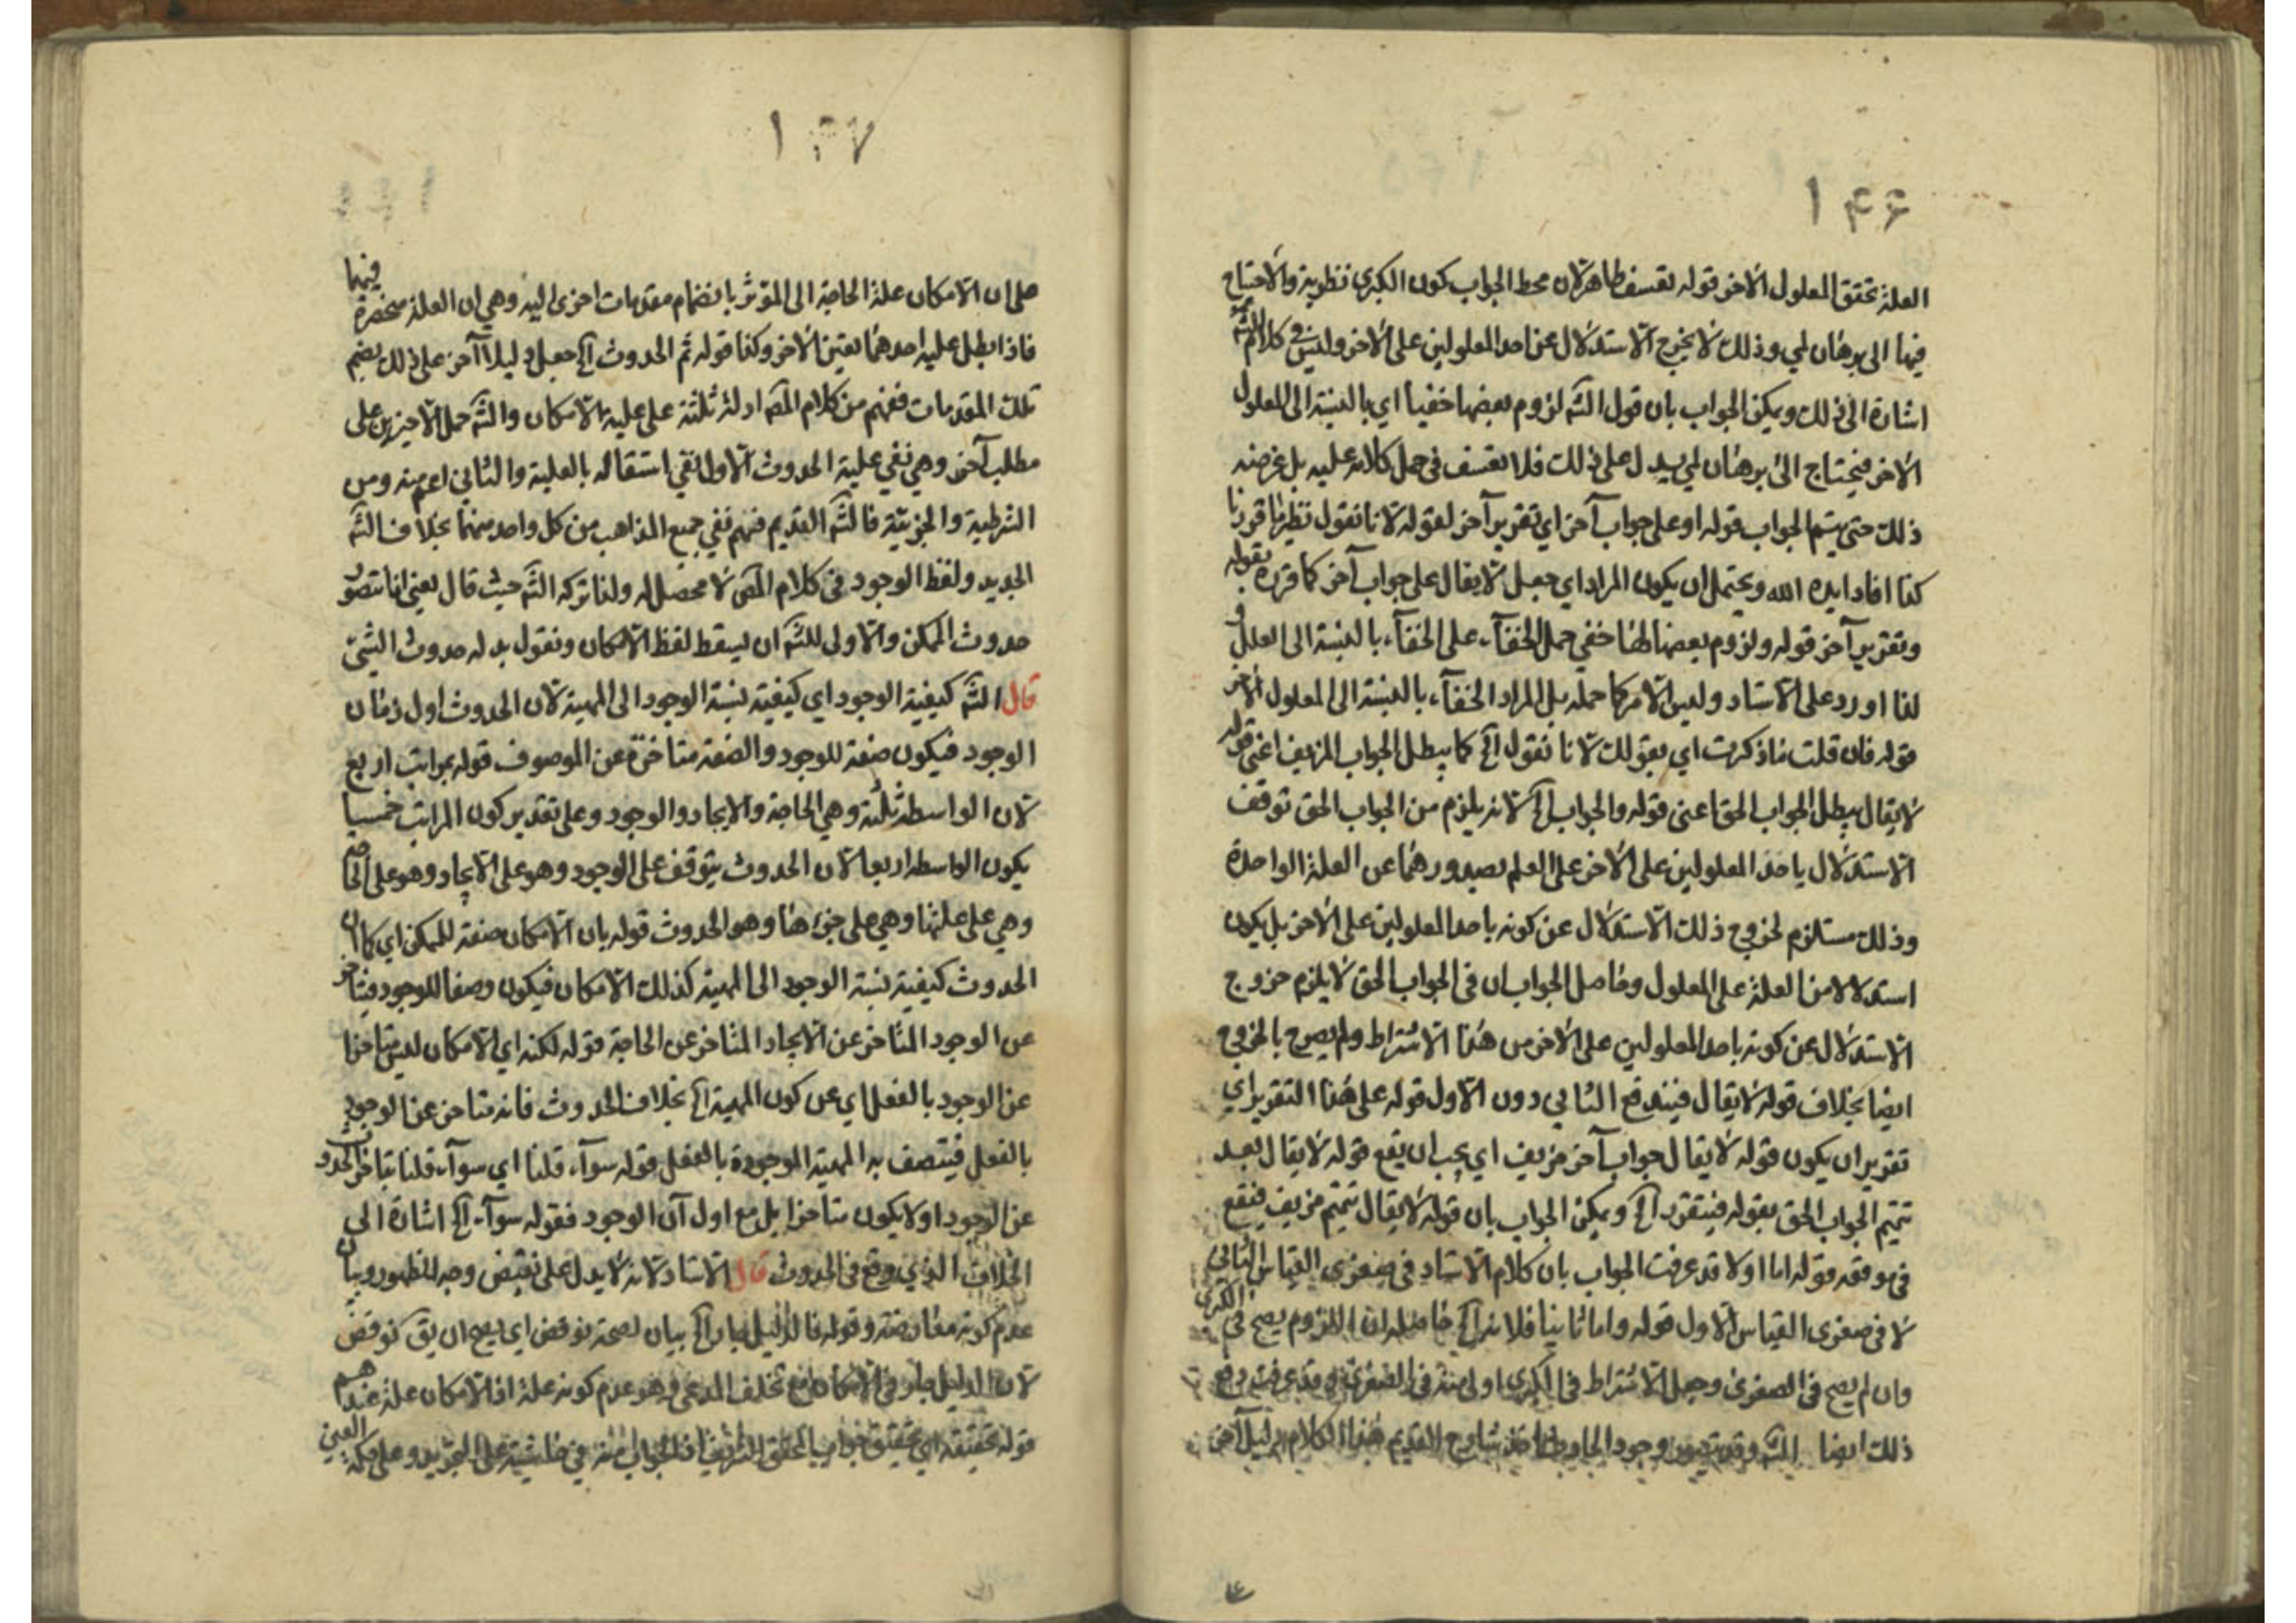 ١٤٦
العلة تحقق المعلول الآخر قوله تعسف ظاهر لان محط الجواب كون الكبرى نظرية والاحتياج
فيها الى برهان لمي وذلك لا يخرج الاستدلال عن احد المعلولين على الآخر وليس في كلام الش
اشارة الى ذلك ويمكن الجواب بان قول الش لزوم بعضها خفيا اي بالنسبة الى المعلول
الآخر فيحتاج الى برهان لمي يدل على ذلك فلا تعسف في حمل كلامه عليه بل غرضه
ذلك حتى يتم الجواب قوله او على جواب آخر اي تقرير آخر لقوله لانا نقول نظرنا قررنا
كذا افاد ايده الله ويحتمل ان يكون المراد اي جعل لا يقال على جواب آخر كما قرره بقوله
وتقرير آخر قوله ولزوم بعضها لها خفي حمل الخفآء على الخفآء بالنسبة الى العلل و
لذا اورد على الاستاد وليس الامر كما حمله بل المراد الخفآء بالنسبة الى المعلول الآخر
قوله فان قلت ما ذكرت اي بقولك لانا نقول الخ كما يبطل الجواب المزيف اعني قوله
لا يقال يبطل الجواب الحق اعني قوله والجواب الخ لانه يلزم من الجواب الحق توقف
الاستدلال باحد المعلولين على الآخر على العلم بصدورهما عن العلة الواحدة
وذلك مستلزم لخروج ذلك الاستدلال عن كونه باحد المعلولين على الآخر بل يكون
استدلالا من العلة على المعلول وحاصل الجواب ان في الجواب الحق لا يلزم خروج
الاستدلال عن كونه باحد المعلولين على الآخر من هذا الاشتراط ولم يصرح بالخروج
ايضا بخلاف قوله لا يقال فيندفع الثاني دون الاول قوله على هذا التقرير اي
تقرير ان يكون قوله لا يقال جواب آخر مزيف اي يجب ان يقع قوله لا يقال بعد
تتميم الجواب الحق بقوله فيتقرر الخ ويمكن الجواب بان قوله لا يقال تتميم مزيف فيقع
في موقعه قوله اما اولا قد عرفت الجواب بان كلام الاستاد في صغرى القياس الثاني
لا في صغرى القياس الاول قوله واما ثانيا فلانه الخ حاصله ان اللزوم يصح في الكبرى
وان لم يصح في الصغرى وجعل الاشتراط في الكبرى اولى منه في الصغرى قد عرفت دفع
ذلك ايضا الش وقد يتصور وجود الحادث القديم هذا الكلام دليل آخر
١٤٧
على ان الامكان علة الحاجة الى المؤثر بانضمام مقدمات اخرى اليه وهي ان العلة منحصرة فيهما
فاذا ابطل علية احدهما تعين الآخر وكذا قوله ثم الحدوث الخ جعل دليلا آخر على ذلك بضم
تلك المقدمات ففهم من كلام المص ادلة ثلثة على علية الامكان والش حمل الاخيرين على
مطلب آخر وهي نفي علية الحدوث الاول نفي استقاله بالعلية والثاني اعم منه ومن
الشرطية والجزئية فالش القديم فهم نفي جميع المذاهب من كل واحد منهما بخلاف الش
الجديد ولفظ الوجود في كلام المص لا محصل له ولذا تركه الش حيث قال يعني انا نتصور
حدوث الممكن والاولى للش ان يسقط لفظ الامكان ونقول بدله حدوث الشئ
قال الش كيفية الوجود اي كيفية نسبة الوجود الى المهية لان الحدوث اول زمان
الوجود فيكون صفة للوجود والصفة متاخرة عن الموصوف قوله بمراتب اربع
لان الواسطة ثلثة وهي الحاجة والايجاد والوجود وعلى تقدير كون المراتب خمسا
يكون الواسطة اربعا لان الحدوث يتوقف على الوجود وهو على الايجاد وهو على الحاجة
وهي على علتها وهي على جزءها وهو الحدوث قوله بان الامكان صفة للممكن اي كما ان
الحدوث كيفية نسبة الوجود الى المهية كذلك الامكان فيكون وصفا للوجود فيتاخر
عن الوجود المتاخر عن الايجاد المتاخر عن الحاجة قوله لكنه اي الامكان ليس متاخرا
عن الوجود بالفعل اي عن كون المهية الخ بخلاف الحدوث فانه متاخر عن الوجود
بالفعل فيتصف به المهية الموجودة بالفعل قوله سوآء قلنا اي سوآء قلنا بتاخر الحدوث
عن الوجود او لا يكون متاخرا بل مع اول آن الوجود فقوله سوآء الخ اشارة الى
الخلاف الذي وقع في الحدوث قال الاستاد لانه لا يدل على نقيض وجه لظهور وبيان
عدم كونه معارضة وقوله فالدليل جار الخ بيان لصحة نوقض اي يصح ان يق نوقض
لان الدليل جار في الامكان مع تخلف المدعى وهو عدم كونه علة اذ الامكان علة عندهم
قوله تحقيقه اي تحقيق جواب المحقق الشريف في حاشية على التجريد وعلى حكمة العين